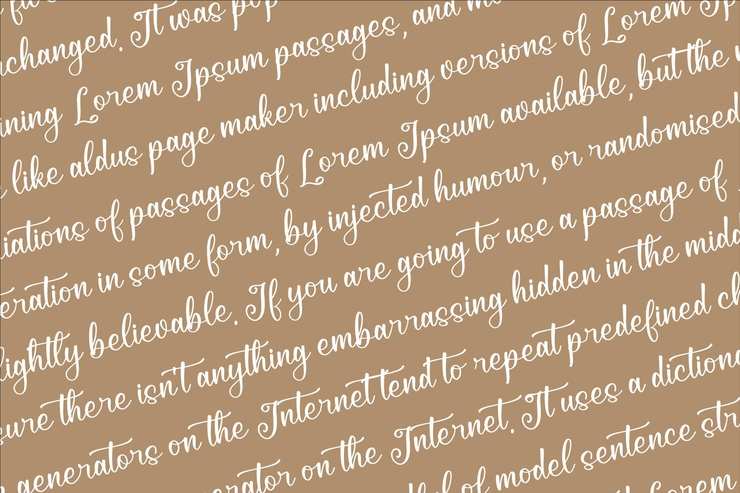 unchanged. It was pop
ining Lorem Ipsum passages, and mo
like aldus page maker including versions of Lorem Ip
iations of passages of Lorem Ipsum available, but the
eration in some form, by injected humour, or randomised
lightly believable. If you are going to use a passage of
sure there isn't anything embarrassing hidden in the midd
generators on the Internet tend to repeat predefined ch
rator on the Internet. It uses a dictiona
ful of model sentence str
Lorem